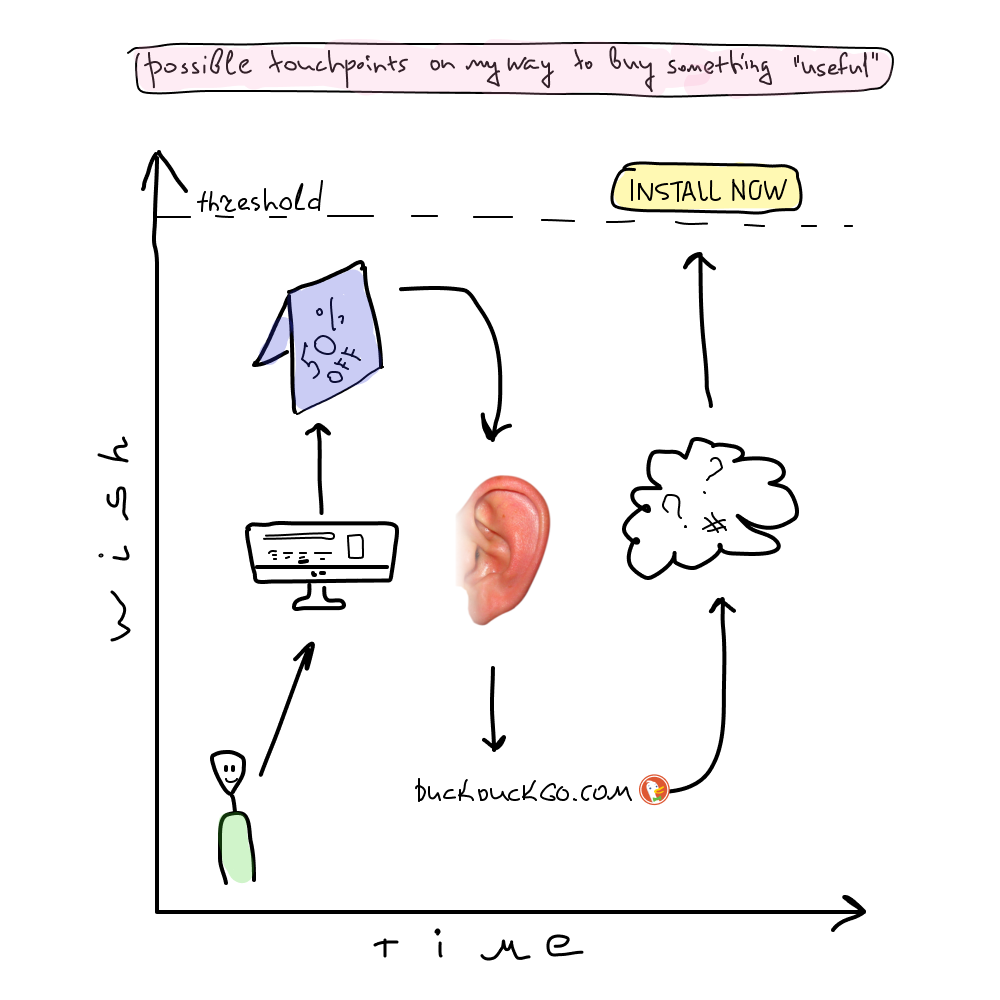 possible touchpoints on my way to buy something "useful"
threshold
INSTALL NOW
%
50
OFF
wish
? ? #
DUCKDUCKGO.COM
TIME